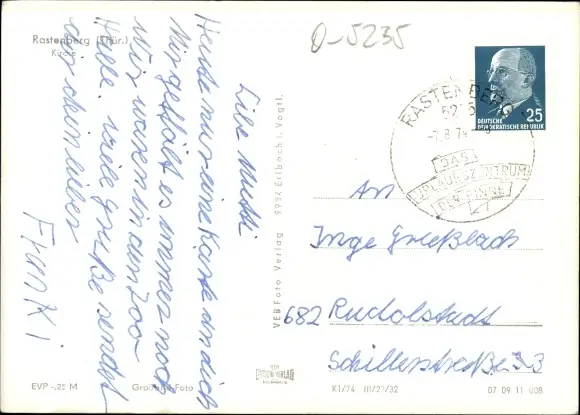 Rastenberg (Thür.)
Kirche
O-5235
Liebe Mutti
Heute nur eine Karte an dich
Mir gefällt es immer noch
Wir waren in dem Zoo
Halle. Viele Grüße sendet
dir dein lieber
Frank!
DEUTSCHE
DEMOKRATISCHE REPUBLIK
25
RASTENBERG
-7.8.74
DAS
URLAUBSZENTRUM
DER FINNE
An
Inge
682 Rudolstadt
Schillerstraße 33
VEB Foto-Verlag 9934 Erlbach i. Vogtl.
EVP -,25 M
Großbild-Foto
K1/74 III/29/32
07 09 11 008